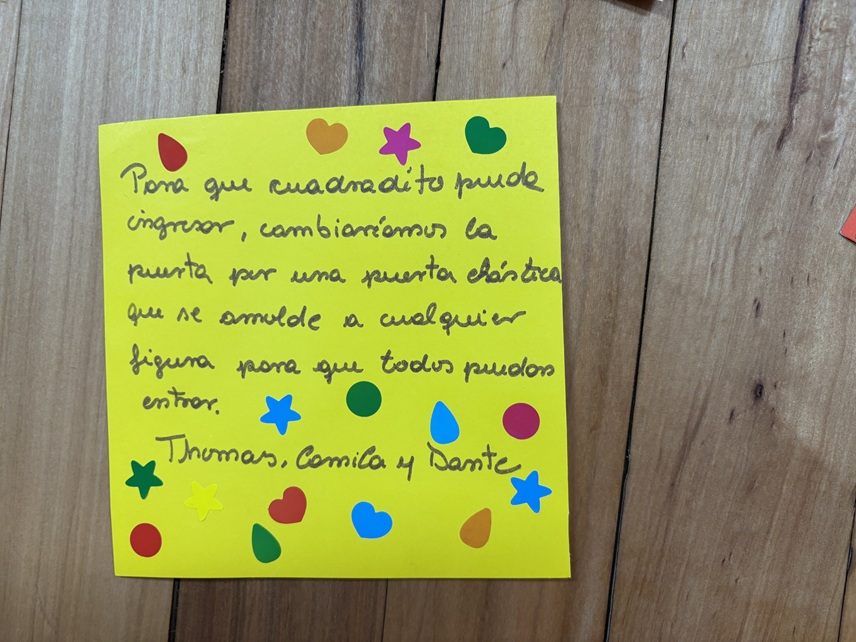 Para que cuadradito pueda
ingresar, cambiaríamos la
puerta por una puerta elástica
que se amolde a cualquier
figura para que todos puedan
entrar.
Thomas, Camila y Dante